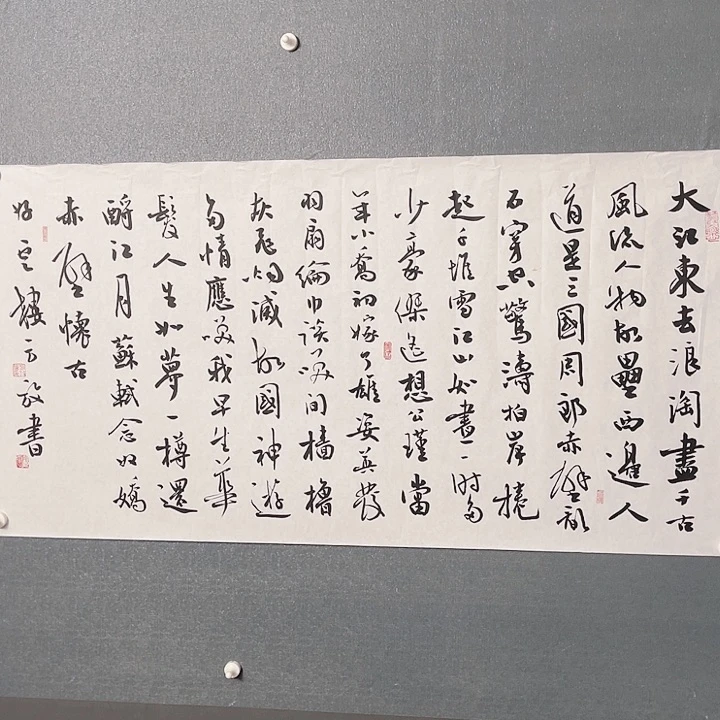 大江東去浪淘盡千古
風流人物故壘西邊人
道是三國周郎赤壁亂
石穿空驚濤拍岸捲
起千堆雪江山如畫一時多
少豪傑遙想公瑾當
年小喬初嫁了雄姿英發
羽扇綸巾談笑間檣櫓
灰飛烟滅故國神遊
多情應笑我早生華
髮人生如夢一樽還
酹江月蘇軾念奴嬌
赤壁懷古
樓書